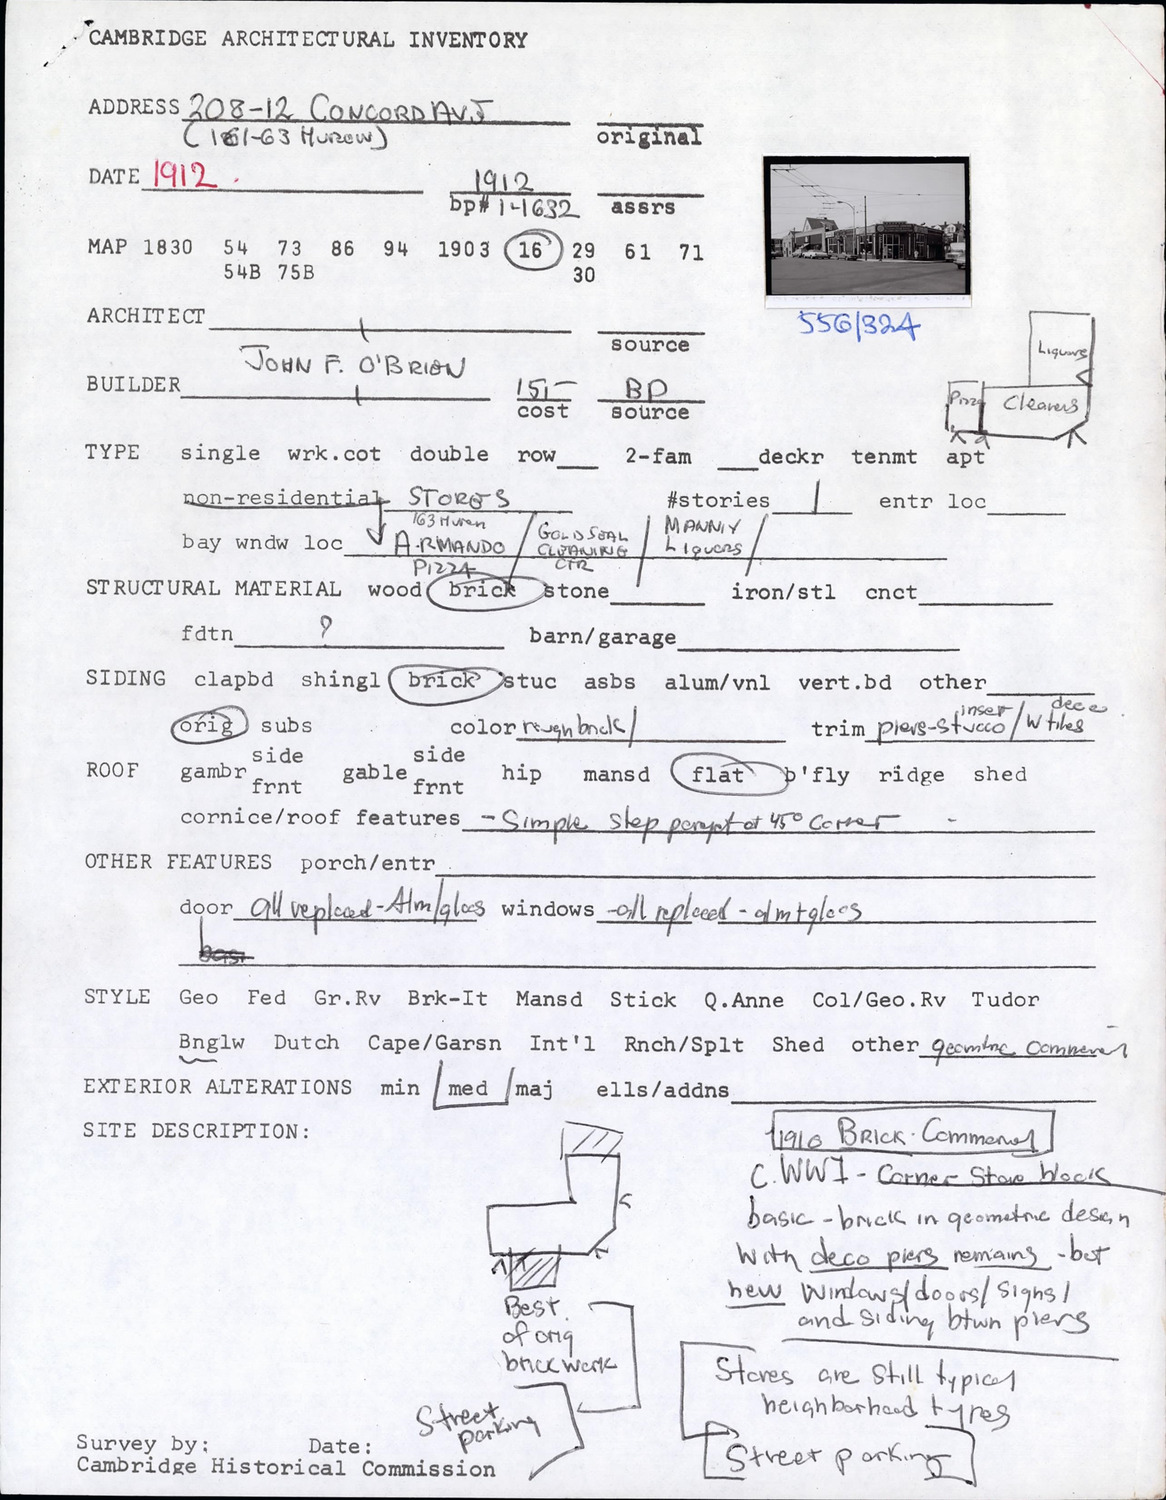 CAMBRIDGE ARCHITECTURAL INVENTORY
ADDRESS 208-12 CONCORD AV
(161-63 HURON) original
DATE 1912. 1912
bp# 1-1632 assrs
MAP 1830 54 73 86 94 1903 16 29 61 71
54B 75B 30
556/324
ARCHITECT
source
JOHN F. O'BRION
BUILDER 15,- BP
cost source
Liquors
Pizza Cleaners
TYPE single wrk.cot double row 2-fam deckr tenmt apt
non-residential STORES #stories 1 entr loc
163 Huron
bay wndw loc ARMANDO PIZZA / GOLD SEAL CLEANING CTR / MANNIX Liquors /
STRUCTURAL MATERIAL wood brick stone iron/stl cnct
fdtn ? barn/garage
SIDING clapbd shingl brick stuc asbs alum/vnl vert.bd other
orig subs color rough brick/ trim piers-stucco insert/W deco tiles
ROOF gambr side frnt gable side frnt hip mansd flat b'fly ridge shed
cornice/roof features - Simple Step parapet at 45° Corner -
OTHER FEATURES porch/entr
door all replaced-Alm/glass windows -all replaced - alm+glass
STYLE Geo Fed Gr.Rv Brk-It Mansd Stick Q.Anne Col/Geo.Rv Tudor
Bnglw Dutch Cape/Garsn Int'l Rnch/Splt Shed other geometric commercial
EXTERIOR ALTERATIONS min med maj ells/addns
SITE DESCRIPTION:
1910 BRICK-Commercial
C.WWI - Corner Store block
basic - brick in geometric design
With deco piers remains - but
new Windows/doors/signs/
and siding btwn piers
Best
of orig
brickwork
Street
parking
Stores are still typical
neighborhood types
Street parking
Survey by: Date:
Cambridge Historical Commission